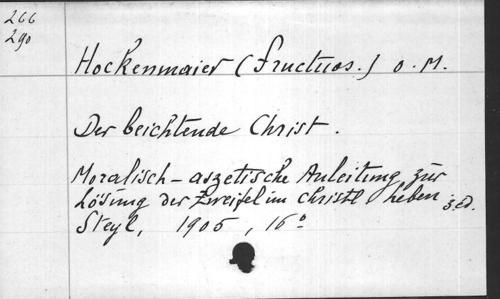 266
290
Hockenmaier (Fructuos.) O. M.
Der beichtende Christ.
Moralisch-aszetische Anleitung zur
Lösung der Zweifel im christl Leben 3. ed.
Steyl, 1905, 16°